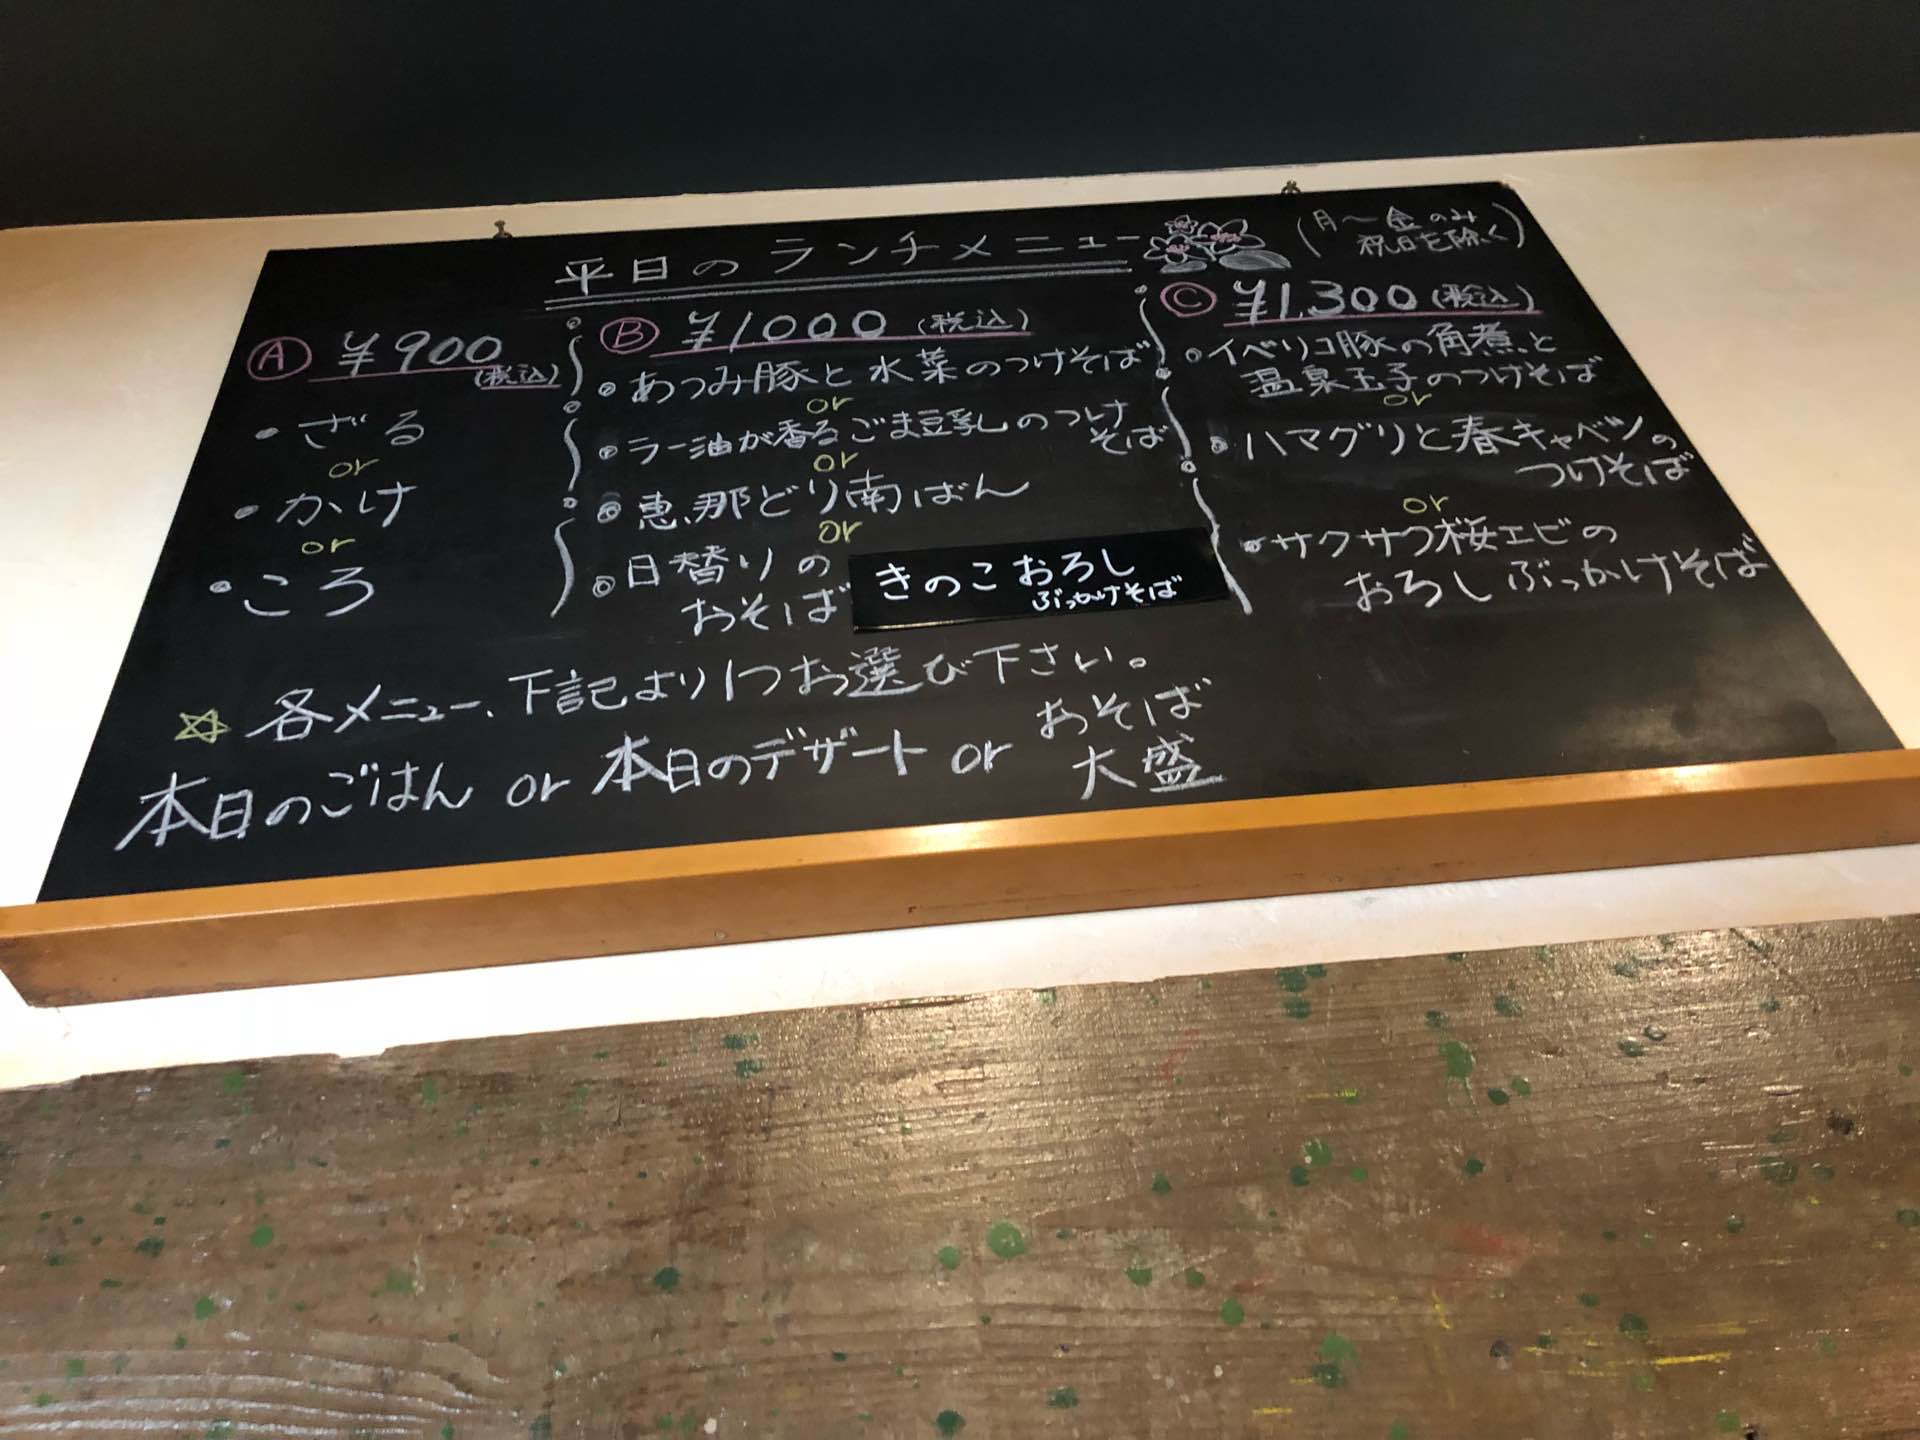 平日のランチメニュー
(月〜金のみ
祝日を除く)
Ⓐ ¥900
(税込)
・ざる
or
・かけ
or
・ころ
Ⓑ ¥1000 (税込)
・あつみ豚と水菜のつけそば
or
・ラー油が香るごま豆乳のつけ
そば
or
・恵那どり南ばん
or
・日替りの
おそば
きのこおろし
ぶっかけそば
Ⓒ ¥1,300 (税込)
・イベリコ豚の角煮と
温泉玉子のつけそば
or
・ハマグリと春キャベツの
つけそば
or
・サクサク桜エビの
おろしぶっかけそば
☆各メニュー、下記より1つお選び下さい。
本日のごはん or 本日のデザート or おそば
大盛